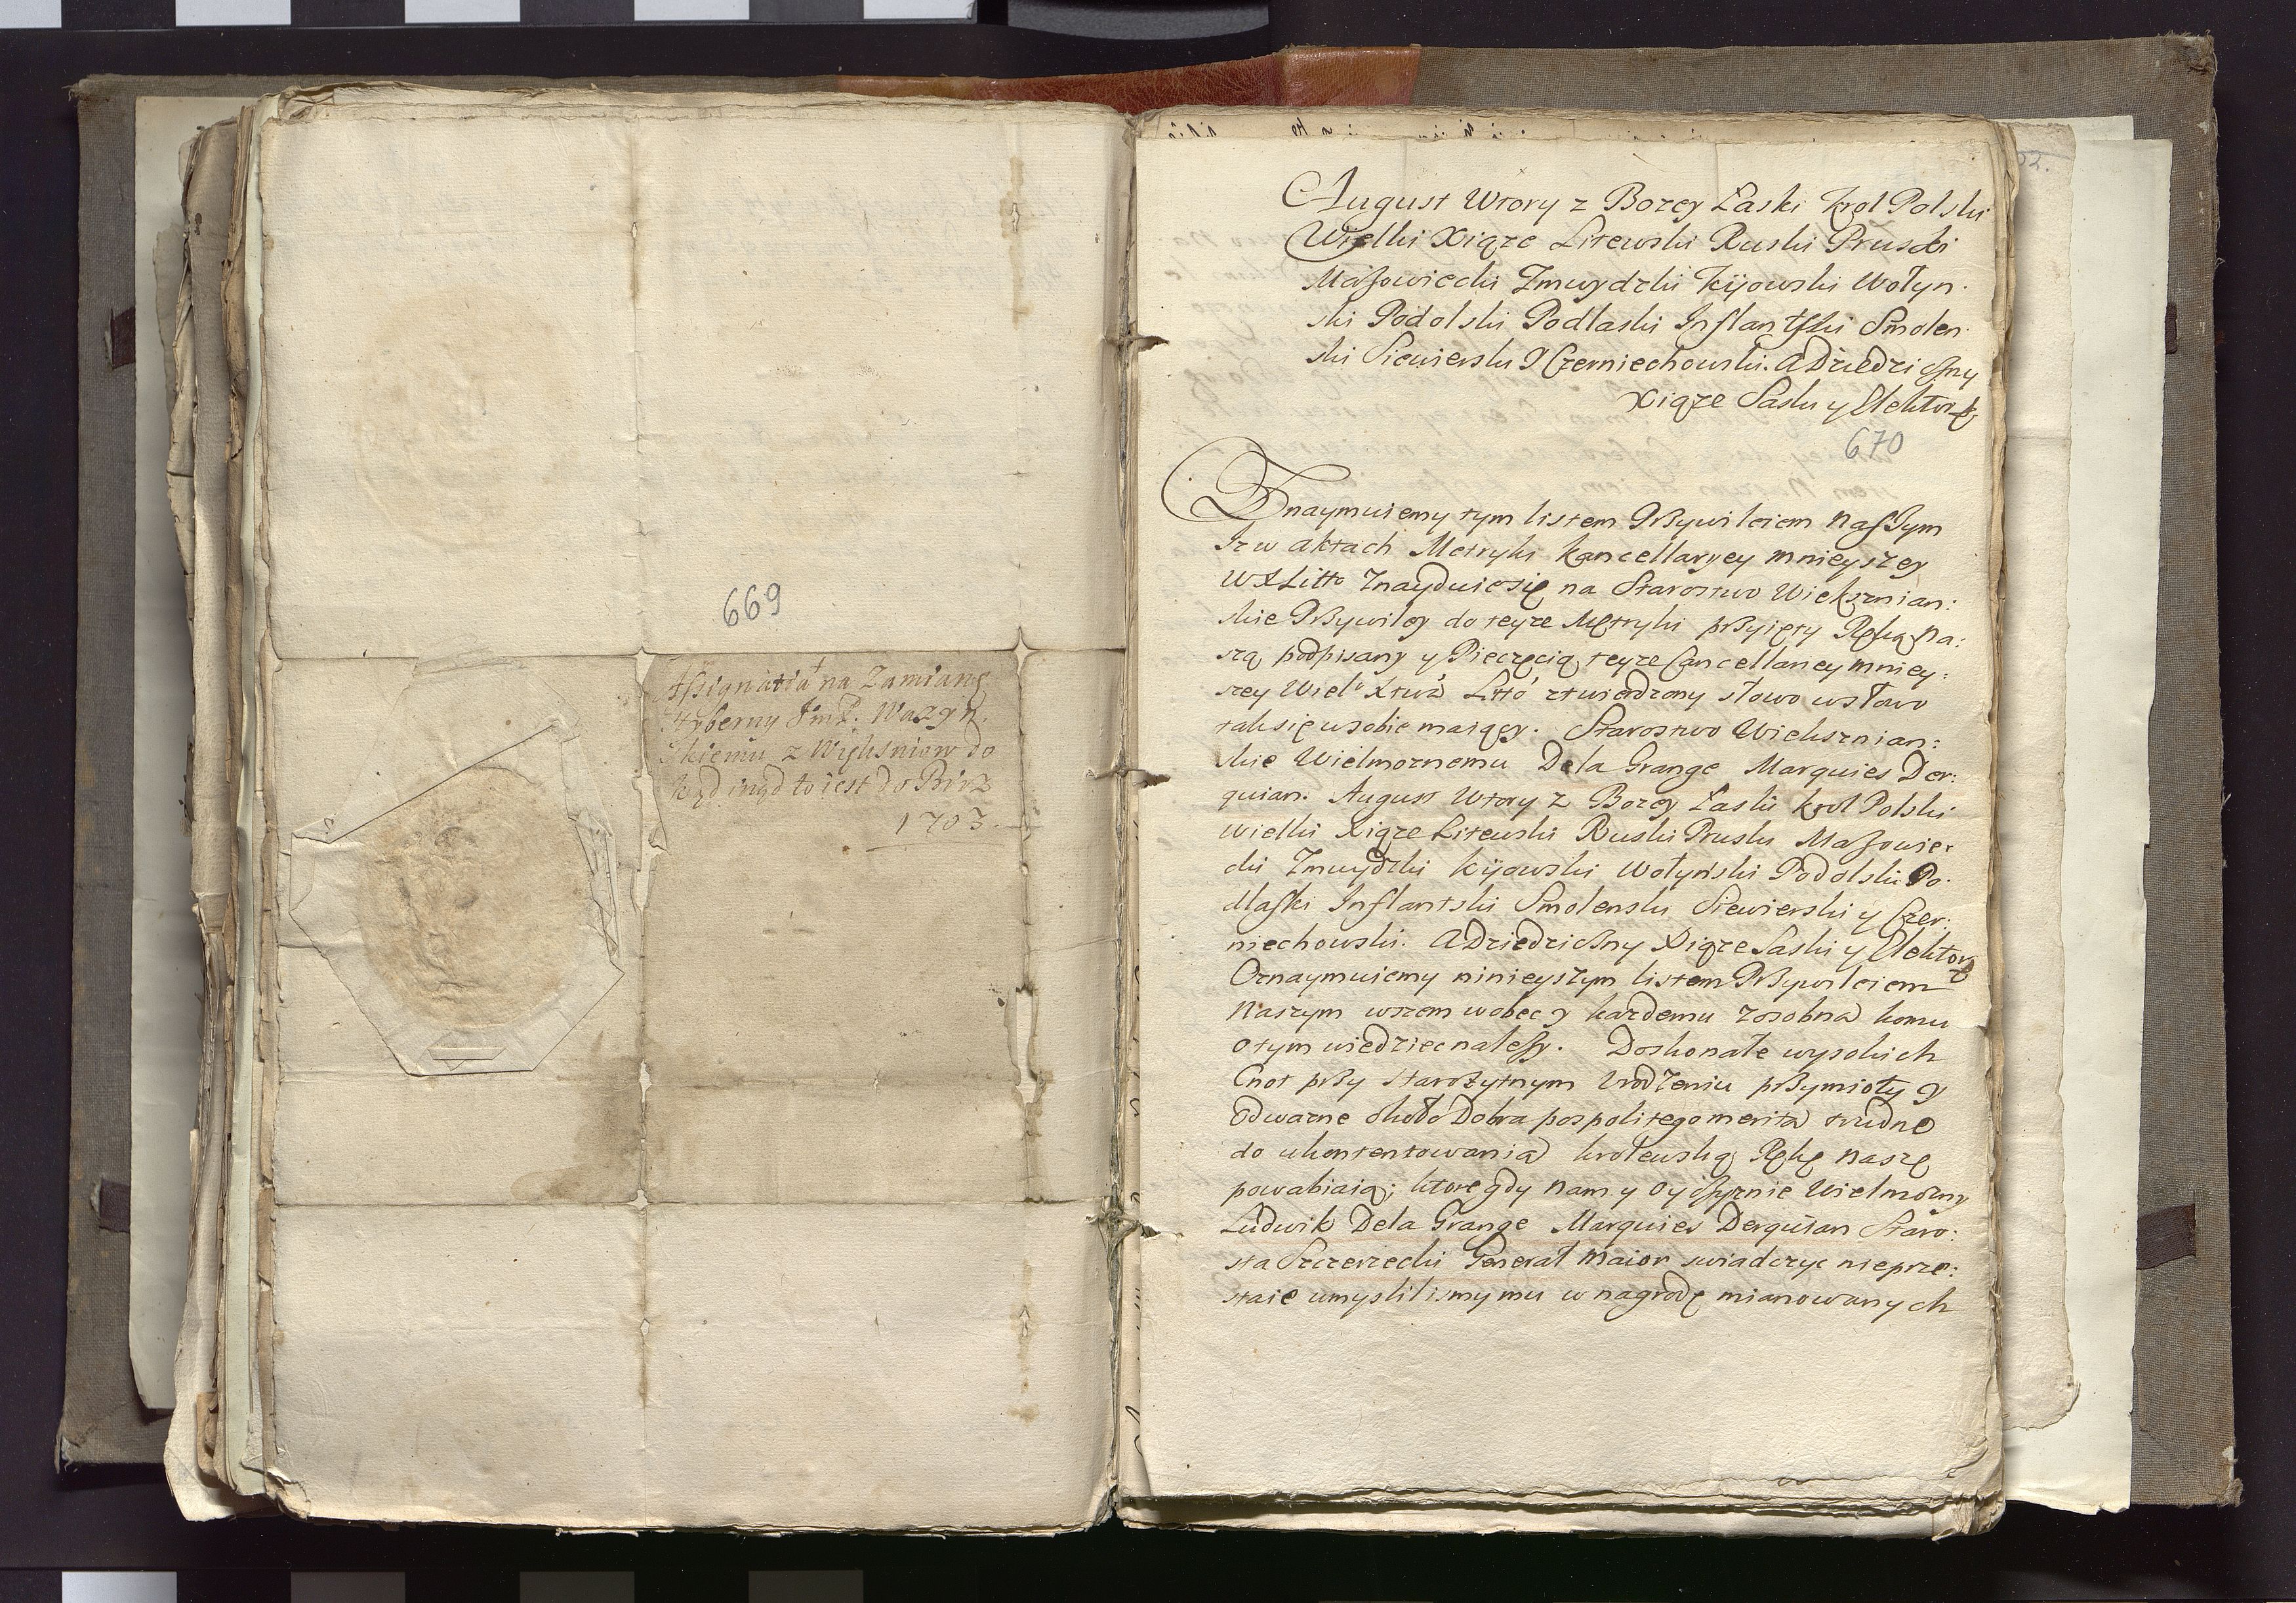 669
Assignatia na Zamianę
Hyberny Jmć. Wazyń.
skiemu z Wiekśniow do
kąd inąd to iest do Birż
1703.
August Wtory z Bozey Łaski Krol Polski
Wielki Xiąze Litewski Ruski Pruski
Mazowiecki Zmuydzki Kijowski Wołyn.
ski Podolski Podlaski Inflantski Smolen
ski Siewierski y Czerniechowski. a Dziedziczny
Xiąze Saski y Elektor
670
Oznaymuiemy tym listem Przywileiem naszym
Iz w aktach Metryki Kancellaryey mnieyszey
WXLitto Znayduie się na Starostwo Wieksznian:
skie Przywiley do teyze Metryki przyięty Ręką na:
szą podpisany y Pieczęcią teyze Cancellariey mniey:
szey Wielo Xtwa Litto ztwierdzony słowo w słowo
tak się w sobie maiący. Starostwo Wiekszniań:
skie Wielmoznemu Dela Grange Marquies Der:
quian. August Wtory z Bozey Łaski Krol Polski
wielki Xiąze Litewski Ruski Pruski Mazowie:
cki Zmuydzki Kijowski Wołyński Podolski Po.
dlaski Inflantski Smolenski Siewierski y Czer:
niechowski. a Dziedziczny Xiąze Saski y Elektor
Oznaymuiemy ninieyszym listem Przywileiem
Naszym wszem wobec y kazdemu zosobna komu
o tym wiedziec nalezy. Doskonałe wysokich
Cnot przy starozytnym Vrodzeniu przymioty y
Odwazne około Dobra pospolitego merita trudne
do ukontentowania krolewską Rękę naszę
powabiaią; ktore gdy nam y Oyczyznie Wielmozny
Ludwik Dela Grange Marquies Derquian Staro:
sta Szczerzecki Generał Maior swiadczyc nieprze:
staie umyslilismy mu w nagrodę mianowanych